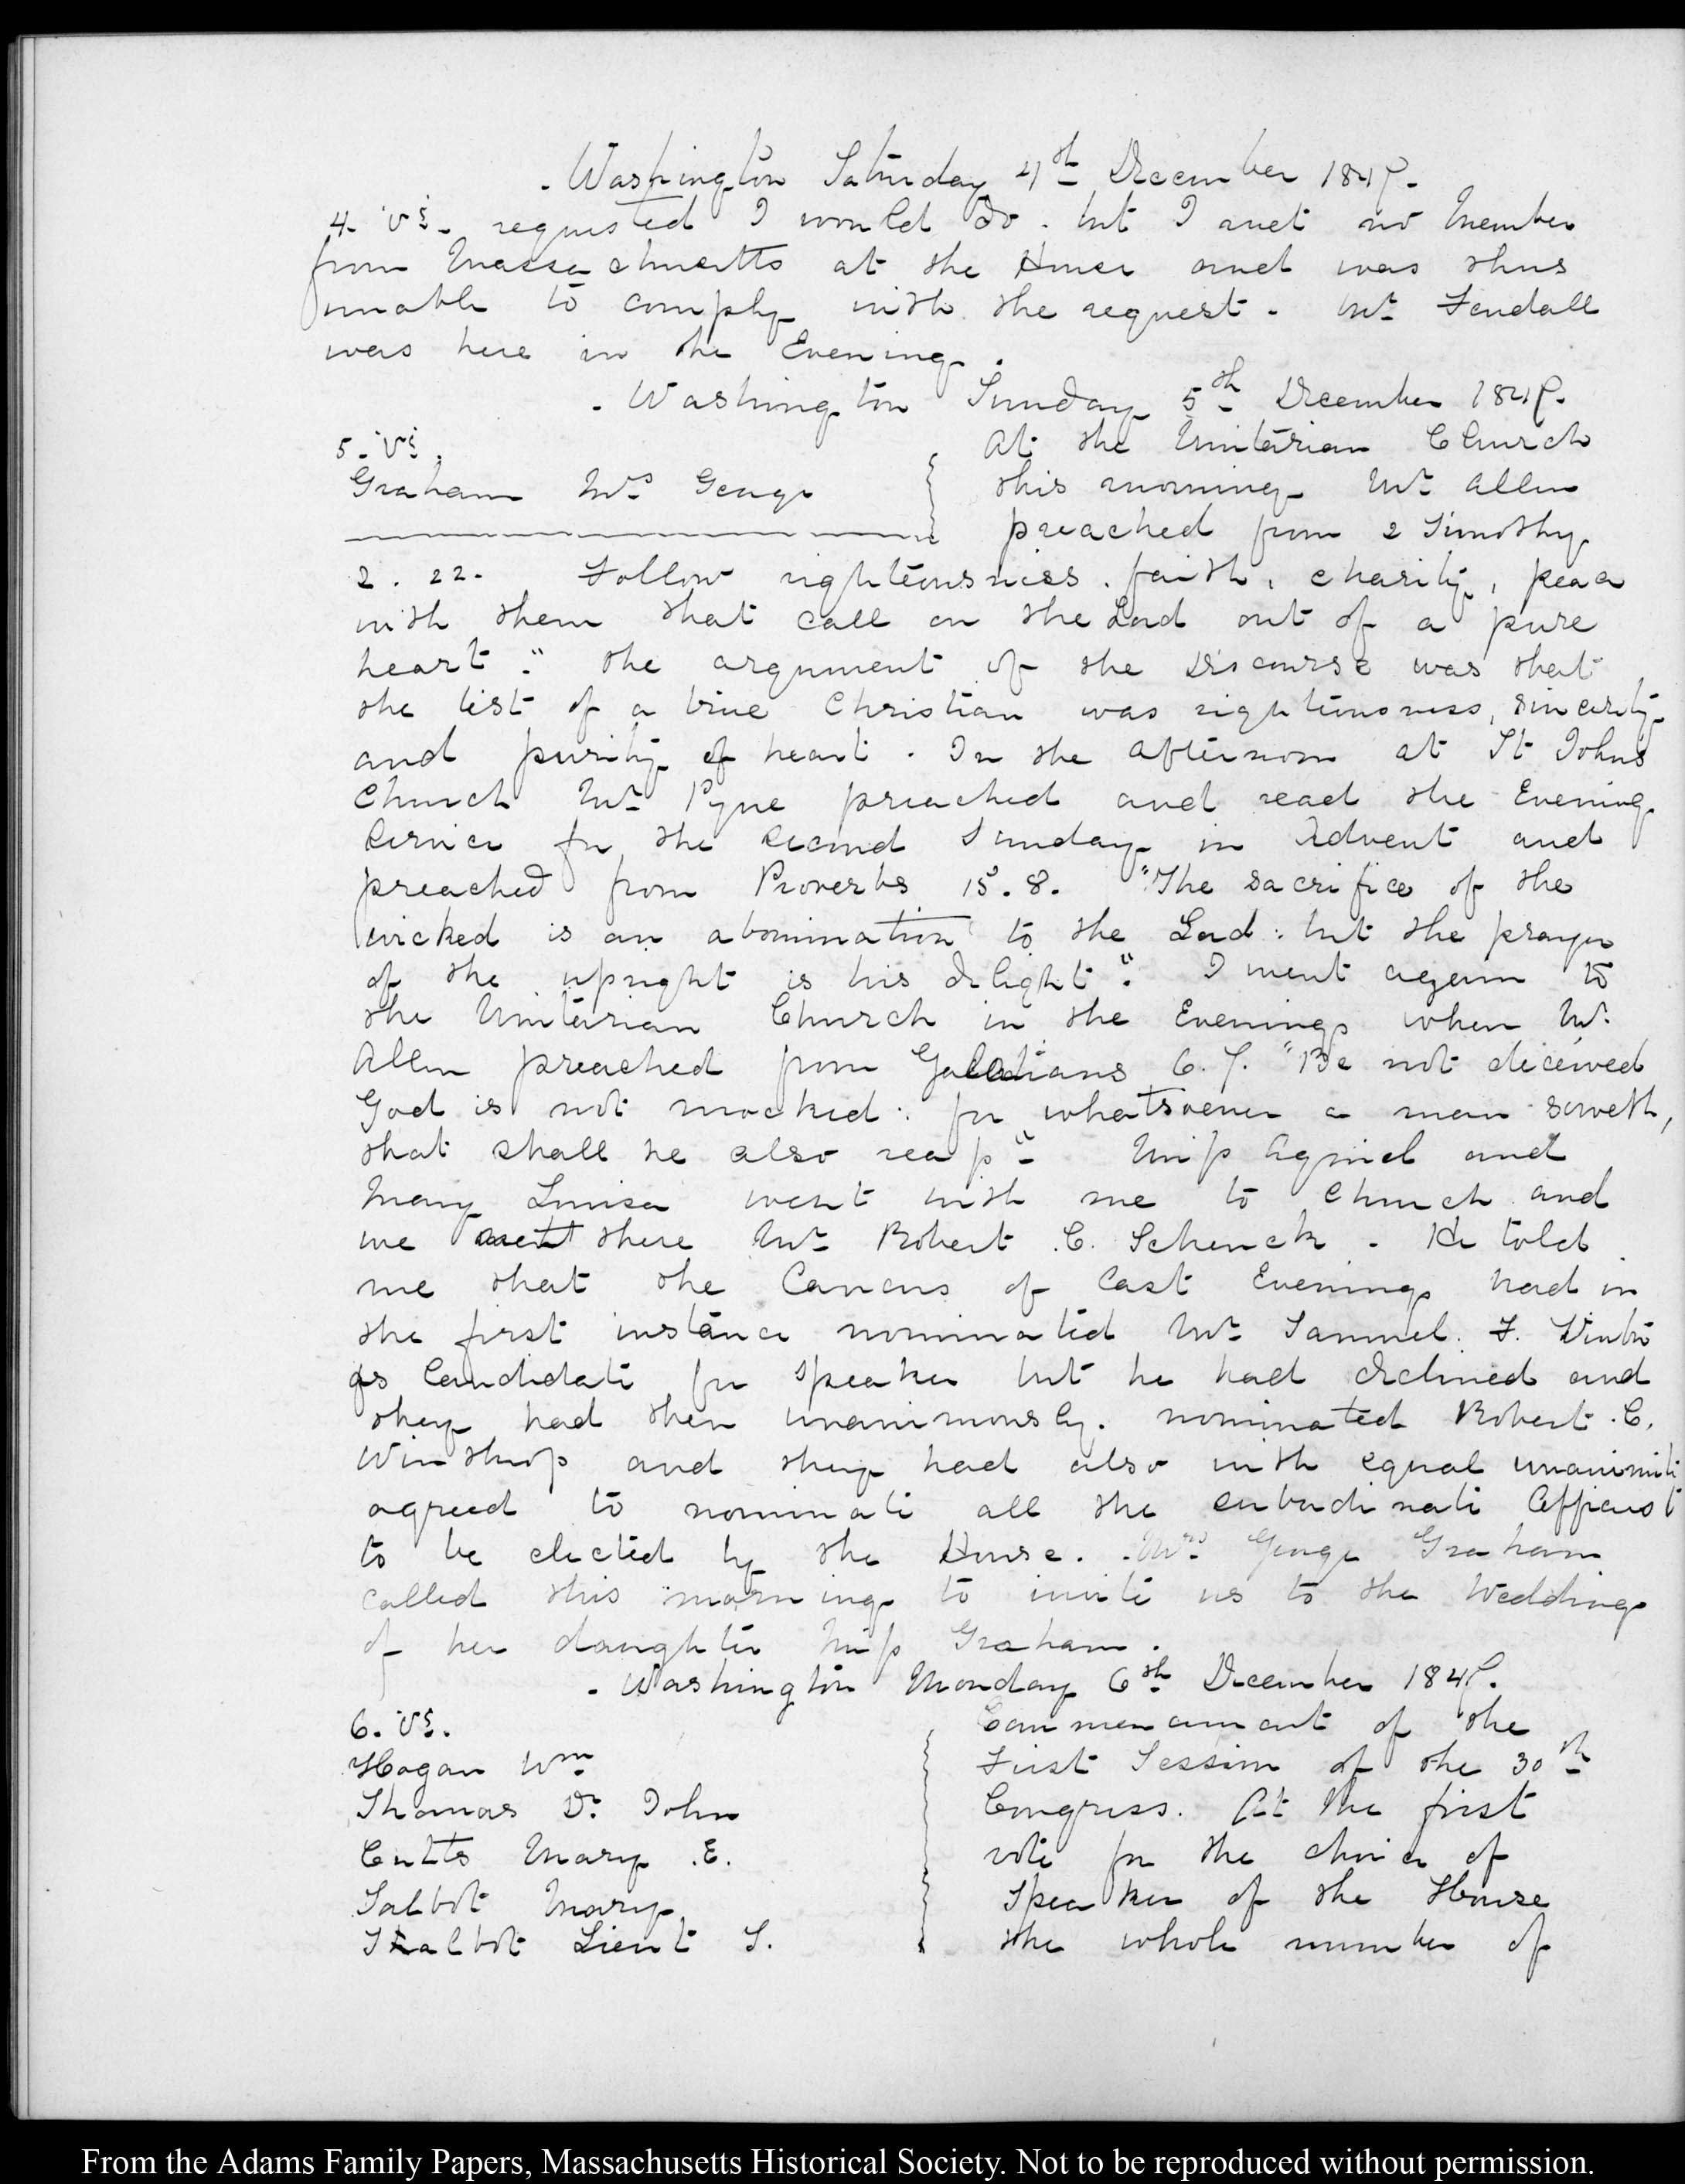 . Washington Saturday 4th December 1847.
4. V I. requested I would do. but I met no Member
from Massachusetts at the House and was thus
unable to comply with the request. Mr Fendall
was here in the Evening.
. Washington Sunday 5th December 1847.
5. V I.
Graham Mrs George
At the Unitarian Church
this morning Mr Allen
preached from 2 Timothy
2. 22. Follow righteousness. faith, charity, peace
with them that call on the Lord out of a pure
heart." the argument of the Discourse was that
the test of a true Christian was righteousness, sincerity
and purity of heart. In the afternoon at St Johns
Church Mr Pyne preached and read the Evening
Service for the second Sunday in Advent and
preached from Proverbs 15. 8. "The sacrifice of the
wicked is an abomination to the Lord: but the prayer
of the upright is his delight". I went again to
the Unitarian Church in the Evening when Mr.
Allen preached from Galatians 6. 7. "Be not deceived
God is not mocked: for whatsoever a man soweth,
that shall he also reap" Miss Cignid and
Mary Louisa went with me to Church and
we met there Mr Robert C. Schenck. He told
me that the Caucus of last Evening had in
the first instance nominated Mr Samuel. F. Vinton
as Candidate for Speaker but he had declined and
they had then unanimously. nominated Robert. C.
Winthrop and they had also with equal unanimity
agreed to nominate all the subordinate Officers
to be elected by the House. Mrs George Graham
called this morning to invite us to the Wedding
of her daughter Miss Graham.
. Washington Monday 6th December 1847.
6. V I.
Hogan Wm
Thomas Dr John
Cutts Mary .E.
Talbot Mary
Talbot Lieut T.
Commencement of the
First Session of the 30th
Congress. At the first
vote for the choice of
Speaker of the House
the whole number of
From the Adams Family Papers, Massachusetts Historical Society. Not to be reproduced without permission.